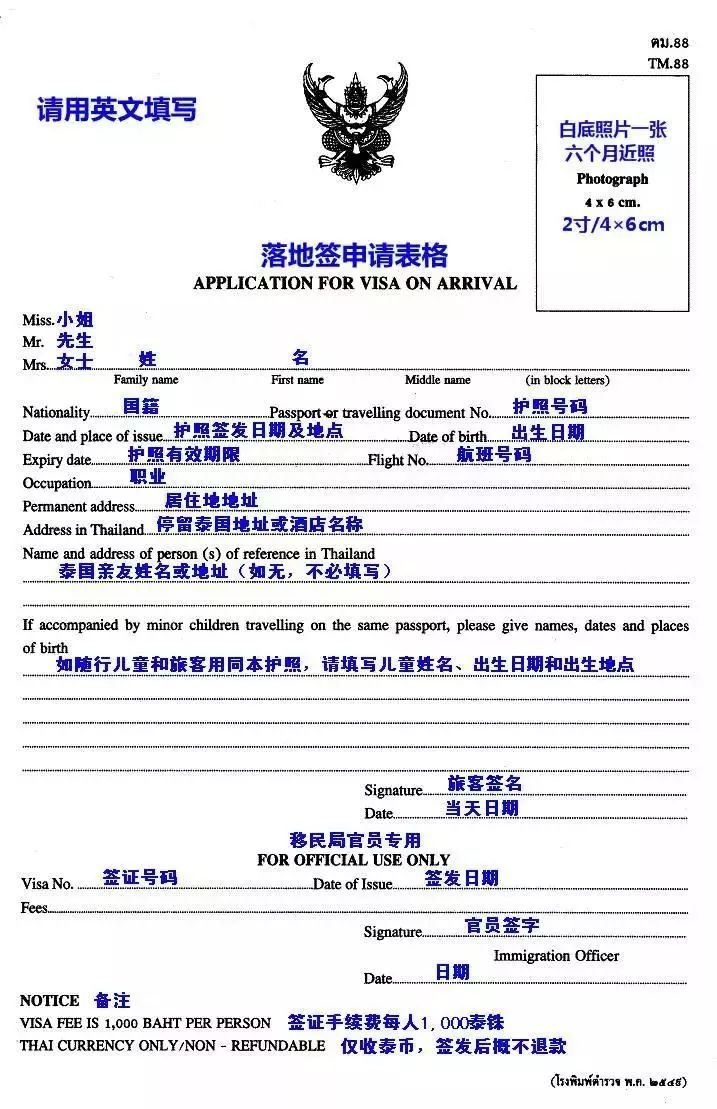 ตม.88
TM.88
请用英文填写
白底照片一张
六个月近照
Photograph
4 x 6 cm.
2寸/4×6cm
落地签申请表格
APPLICATION FOR VISA ON ARRIVAL
Miss. 小姐
Mr. 先生
Mrs. 女士 姓 名
Family name First name Middle name (in block letters)
Nationality 国籍 Passport or travelling document No. 护照号码
Date and place of issue 护照签发日期及地点 Date of birth 出生日期
Expiry date 护照有效期限 Flight No. 航班号码
Occupation 职业
Permanent address 居住地地址
Address in Thailand 停留泰国地址或酒店名称
Name and address of person (s) of reference in Thailand
泰国亲友姓名或地址（如无，不必填写）
If accompanied by minor children travelling on the same passport, please give names, dates and places
of birth
如随行儿童和旅客用同本护照，请填写儿童姓名、出生日期和出生地点
Signature 旅客签名
Date 当天日期
移民局官员专用
FOR OFFICIAL USE ONLY
Visa No. 签证号码 Date of Issue 签发日期
Fees
Signature 官员签字
Immigration Officer
Date 日期
NOTICE 备注
VISA FEE IS 1,000 BAHT PER PERSON 签证手续费每人1,000泰铢
THAI CURRENCY ONLY/NON - REFUNDABLE 仅收泰币，签发后概不退款
(โรงพิมพ์ตำรวจ พ.ศ. ๒๕๔๙)